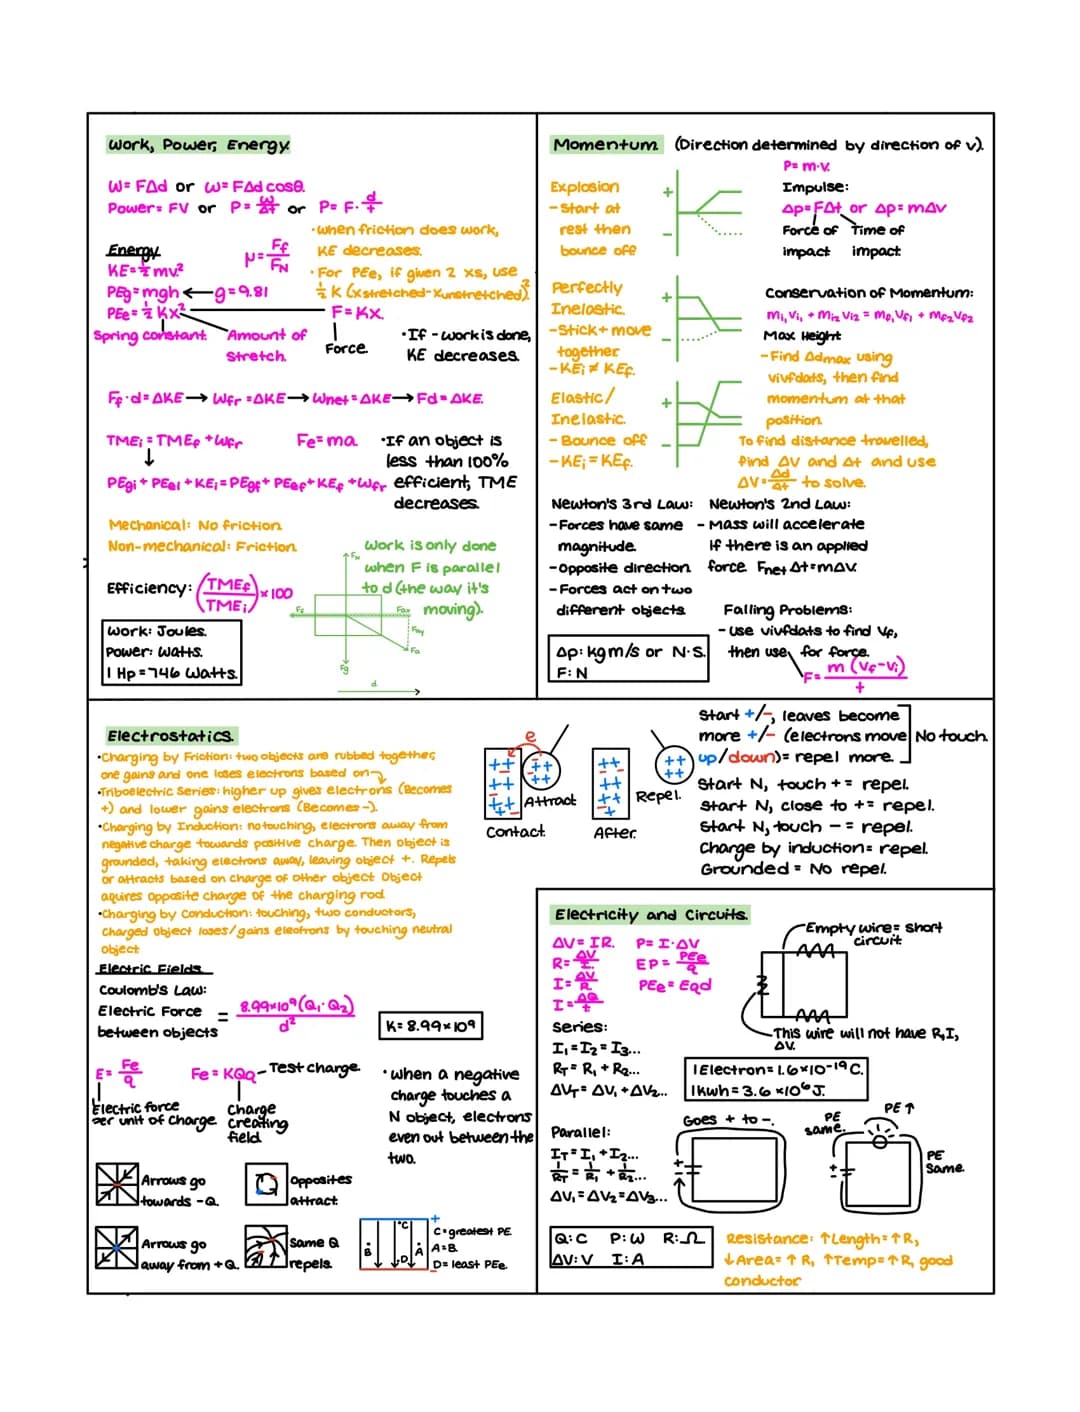 Work, Power, Energy.
W= FΔd or W= FΔd cosθ.
Power= FV or P= W/Δt or P= F· d/t
Energy
KE= ½ mv²
PEg= mgh ← g=9.81
PEe= ½ Kx²
F= Kx.
Spring constant.
Amount of
stretch.
Force.
μ= Ff/FN
·When friction does work,
KE decreases.
· For PEe, if given 2 xs, use
½ K (xstretched-xunstretched)²
·If - work is done,
KE decreases.
Ff·d= ΔKE → Wfr = ΔKE → Wnet= ΔKE → Fd= ΔKE.
TMEi = TMEf + Wfr
Fe= ma.
PEgi + PEei + KEi = PEgf + PEef + KEf + Wfr
·If an object is
less than 100%
efficient, TME
decreases.
Mechanical: No friction.
Non-mechanical: Friction.
Efficiency: (TMEf/TMEi) × 100
Work: Joules.
Power: Watts.
1 Hp = 746 Watts.
Work is only done
when F is parallel
to d (the way it's
moving).
FN
Ff
Fax
Fay
Fa
Fg
d
Momentum. (Direction determined by direction of v).
P= m·v.
Impulse:
Δp= FΔt or Δp= mΔv
Force of
impact
Time of
impact.
Explosion
- Start at
rest then
bounce off
+
-
Perfectly
Inelastic.
-Stick + move
together
- KEi ≠ KEf.
+
-
Elastic/
Inelastic.
- Bounce off
- KEi = KEf.
+
-
Conservation of Momentum:
mi₁ Vi₁ + mi₂ Vi₂ = mf₁ Vf₁ + mf₂ Vf₂
Max Height
- Find Δdmax using
vivfdats, then find
momentum at that
position.
To find distance travelled,
find ΔV and Δt and use
ΔV= Δd/Δt to solve.
Newton's 3rd Law:
-Forces have same
magnitude.
-Opposite direction.
-Forces act on two
different objects.
Newton's 2nd Law:
- Mass will accelerate
If there is an applied
force Fnet Δt = mΔv.
Δp: kg m/s or N·S.
F: N
Falling Problems:
- use vivfdats to find Vf,
then use for force.
F= m (Vf-Vi)/t
Electrostatics.
·Charging by Friction: two objects are rubbed together,
one gains and one loses electrons based on
·Triboelectric Series: higher up gives electrons (Becomes
+) and lower gains electrons (Becomes -).
·Charging by Induction: no touching, electrons away from
negative charge towards positive charge. Then object is
grounded, taking electrons away, leaving object +. Repels
or attracts based on charge of other object Object
aquires opposite charge of the charging rod.
·Charging by Conduction: touching, two conductors,
Charged object loses/gains electrons by touching neutral
object
e
Attract
Contact.
Repel.
After.
Start +/-, leaves become
more +/- (electrons move
up/down) = repel more.
No touch.
Start N, touch + = repel.
Start N, close to + = repel.
Start N, touch - = repel.
Charge by induction= repel.
Grounded = No repel.
Electric Fields.
Coulomb's Law:
Electric Force
between objects
= 8.99×10⁹(Q₁·Q₂)/d²
K= 8.99×10⁹
E= Fe/q
Electric force
per unit of charge.
Fe= KQq
Test charge.
Charge
creating
field.
·When a negative
charge touches a
N object, electrons
even out between the
two.
Arrows go
towards -Q.
Opposites
attract.
Arrows go
away from +Q.
Same Q
repels.
+
B
·C
·D
A
-
C=greatest PE.
A=B.
D= least PEe.
Electricity and Circuits.
ΔV= IR. P= I·ΔV
R= ΔV/I. EP= PEe/q
I= ΔV/R PEe= EQd
I= ΔQ/t
Series:
I₁ = I₂ = I₃...
RT = R₁ + R₂...
ΔVT = ΔV₁ + ΔV₂...
Parallel:
IT = I₁ + I₂...
1/RT = 1/R₁ + 1/R₂...
ΔV₁ = ΔV₂ = ΔV₃...
Empty wire= short
circuit.
This wire will not have R, I,
ΔV.
1 Electron= 1.6×10⁻¹⁹ C.
1kwh= 3.6 ×10⁶ J.
Goes + to -.
+
-
PE
same.
PE ↑
PE
Same.
+
-
Q: C P: W R: Ω
ΔV: V I: A
Resistance: ↑Length= ↑R,
↓Area= ↑ R, ↑Temp= ↑R, good
conductor